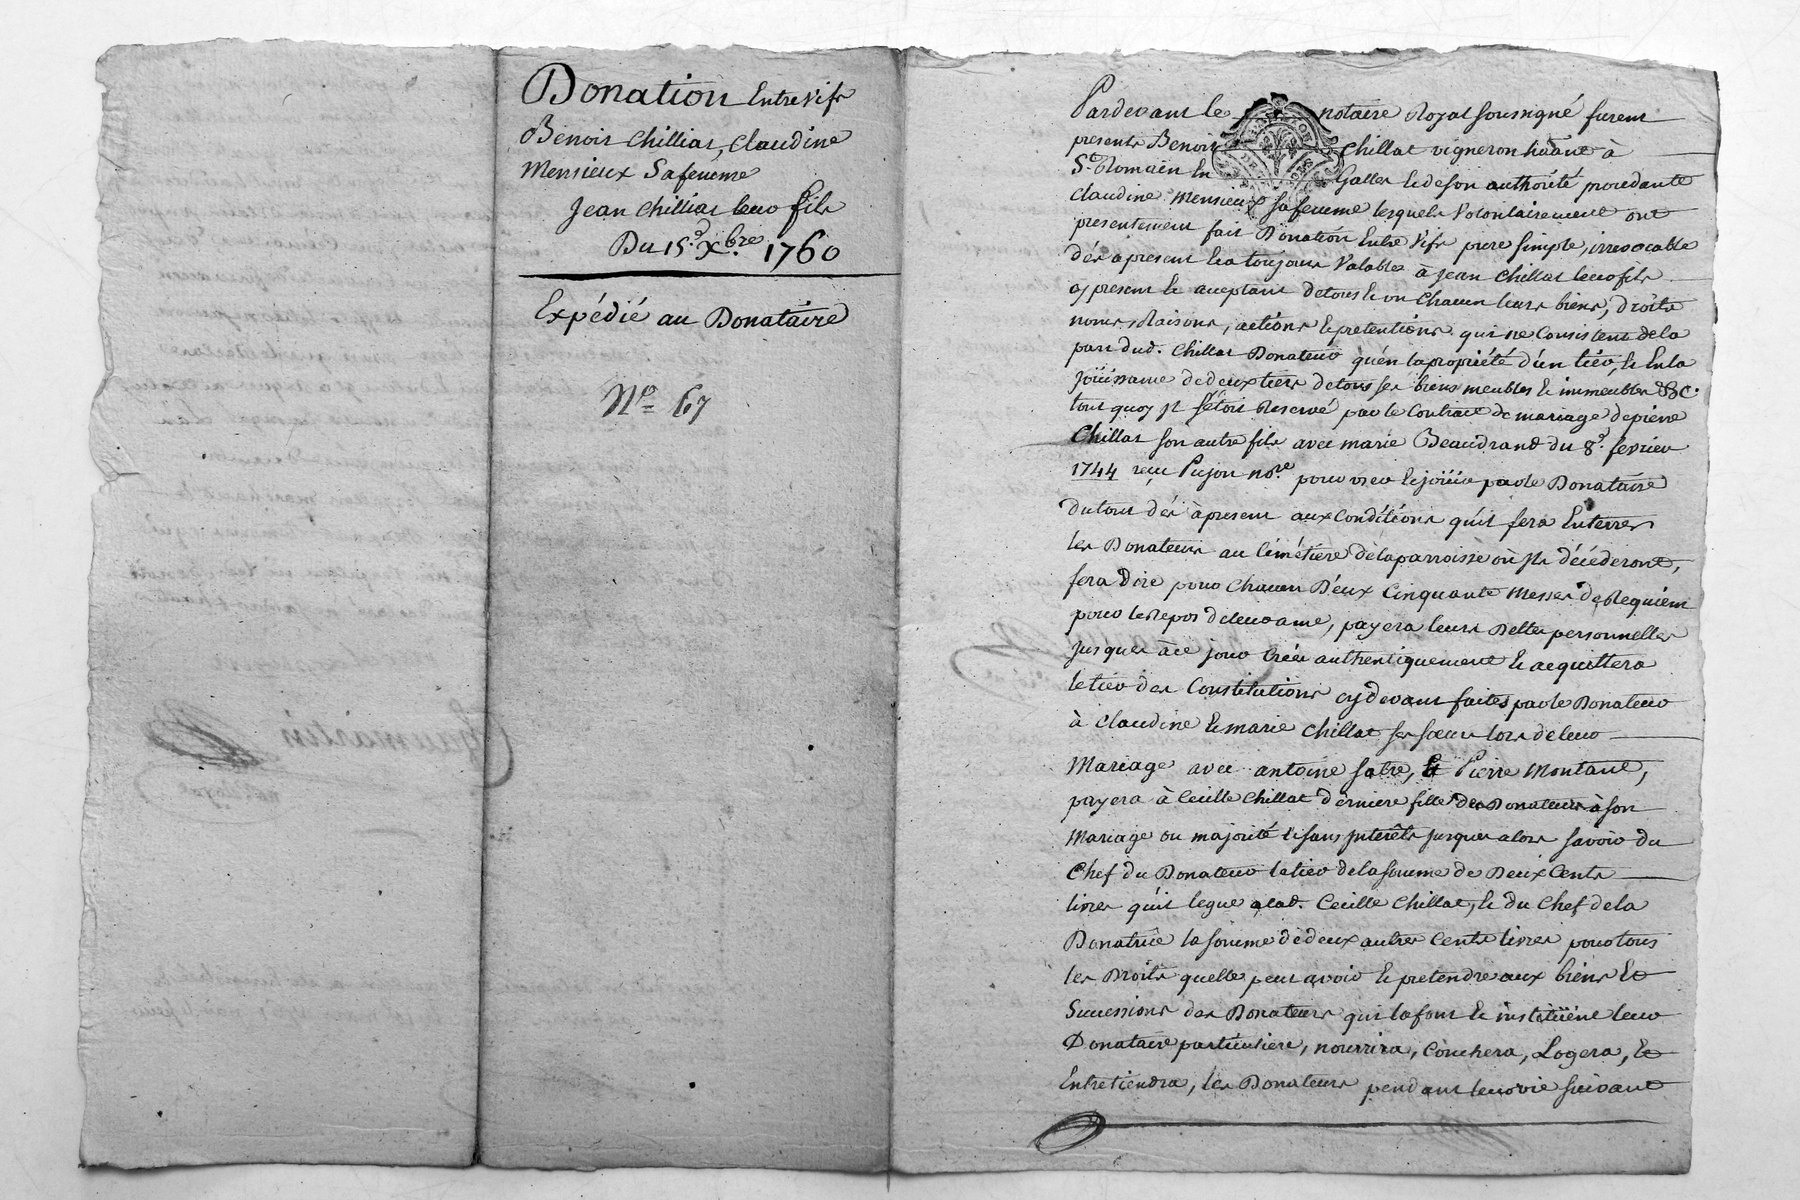 Donation Entrevifs
Benoit Chilliat, Claudine
Mensieux Sa femme
Jean Chilliat leur fils
Du 15.e Xbre. 1760
Expédié au Donataire
No 67
Pardevant le notaire Royal soussigné furent
presents Benoit Chillat vigneron habitant à
St. Romain En Gallee & de son authorité procedante
Claudine Mensieux sa femme lesquels volontairement ont
presentement fait Donation Entre vifs pure simple, irrevocable
dés apresent & a toujours Valable à Jean Chillat leur fils
cy present & acceptant de tous & un Chacun leurs biens, droits
noms, Raisons, actions & pretentions qui ne Consistent de la
part dud. Chillat Donateur qu'en la propriété d'un tier, & En la
joüissance de deux tiers de tous ses biens meubles & immeubles &c.
tout quoy Il s'étoit Reservé par le Contract de mariage de pierre
Chillat son autre fils avec marie Beaudrand du 8.e fevrier
1744 reçu Pujon nore. pour user & joüir par le Donataire
du tout dés à present aux Conditions qu'il fera Enterrer
les Donateurs au Cimétiere de la parroisse où Ils décéderont,
fera Dire pour Chacun D'eux Cinquante Messes de Requiem
pour le Repos de leur ame, payera leurs Dettes personnelles
jusques à ce jour Créés authentiquement & acquittera
le tier des Constitutions cy devant faites par le Donateur
à Claudine & marie Chillat ses sœurs lors de leur
Mariage avec antoine Sabre, & Pierre Montant,
payera à Cecille Chillat derniere fille des Donateurs à son
Mariage ou majorité & sans Interêts jusques alors savoir du
Chef du Donateur le tier de la somme de Deux Cents
livres qu'il legue a lad. Cecille Chillat, & du Chef de la
Donatrice la somme de deux autres Cents livres pour tous
les Droits quelle peut avoir & pretendre aux biens &
Successions des Donateurs qui la font & instituënt leur
Donataire particuliere, nourrira, Couchera, Logera, &
Entretiendra, les Donateurs pendant leur vie suivant